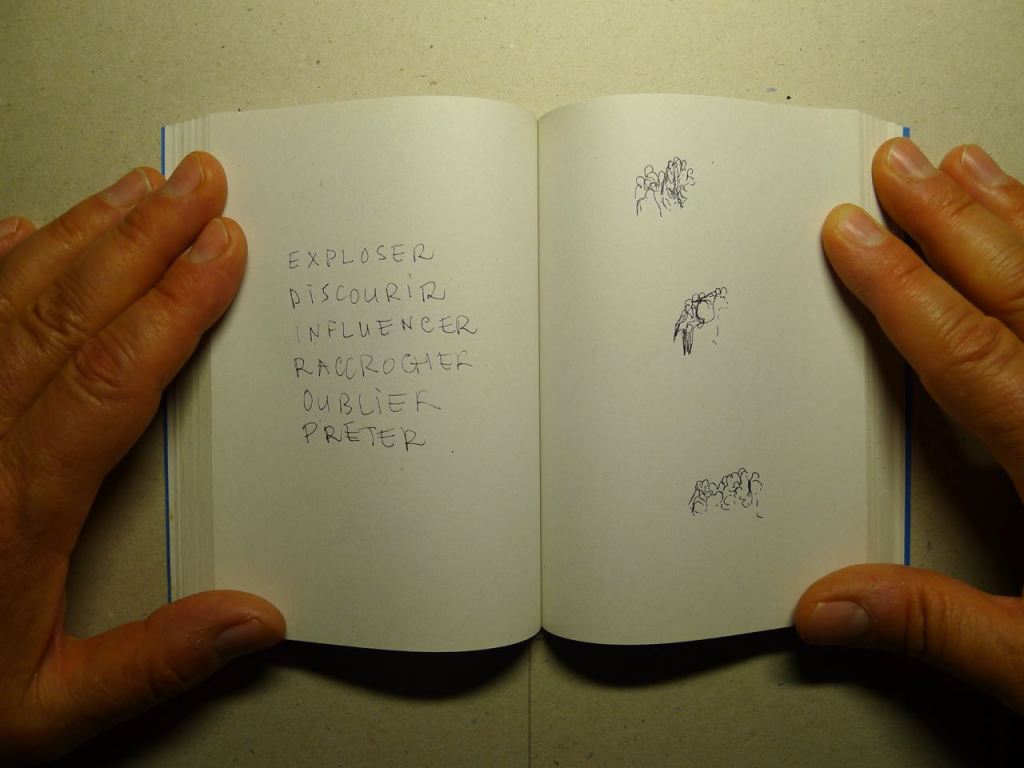 EXPLOSER
DISCOURIR
INFLUENCER
RACCROCHER
OUBLIER
PRÊTER